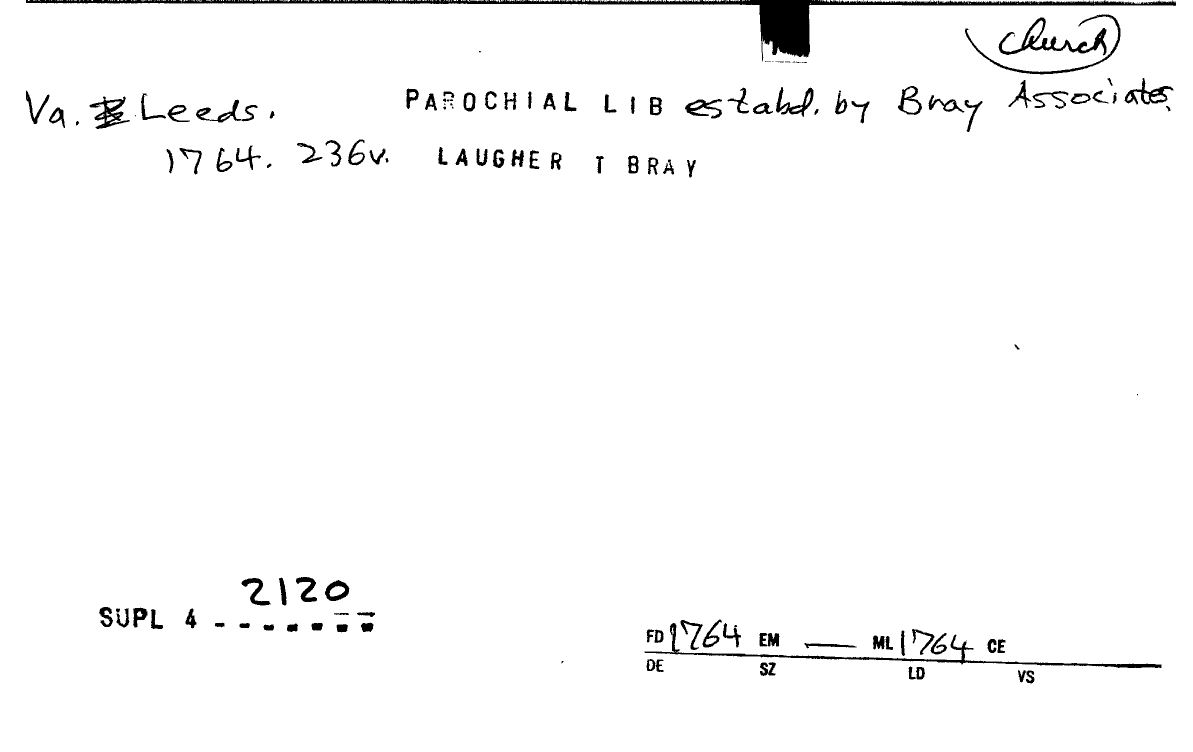 Church
Va. Leeds. PAROCHIAL LIB estabd. by Bray Associates.
1764. 236v. LAUGHER T BRAY
2120
SUPL 4 - - - - - - -
FD 1764 EM — ML 1764 CE
DE SZ LD VS